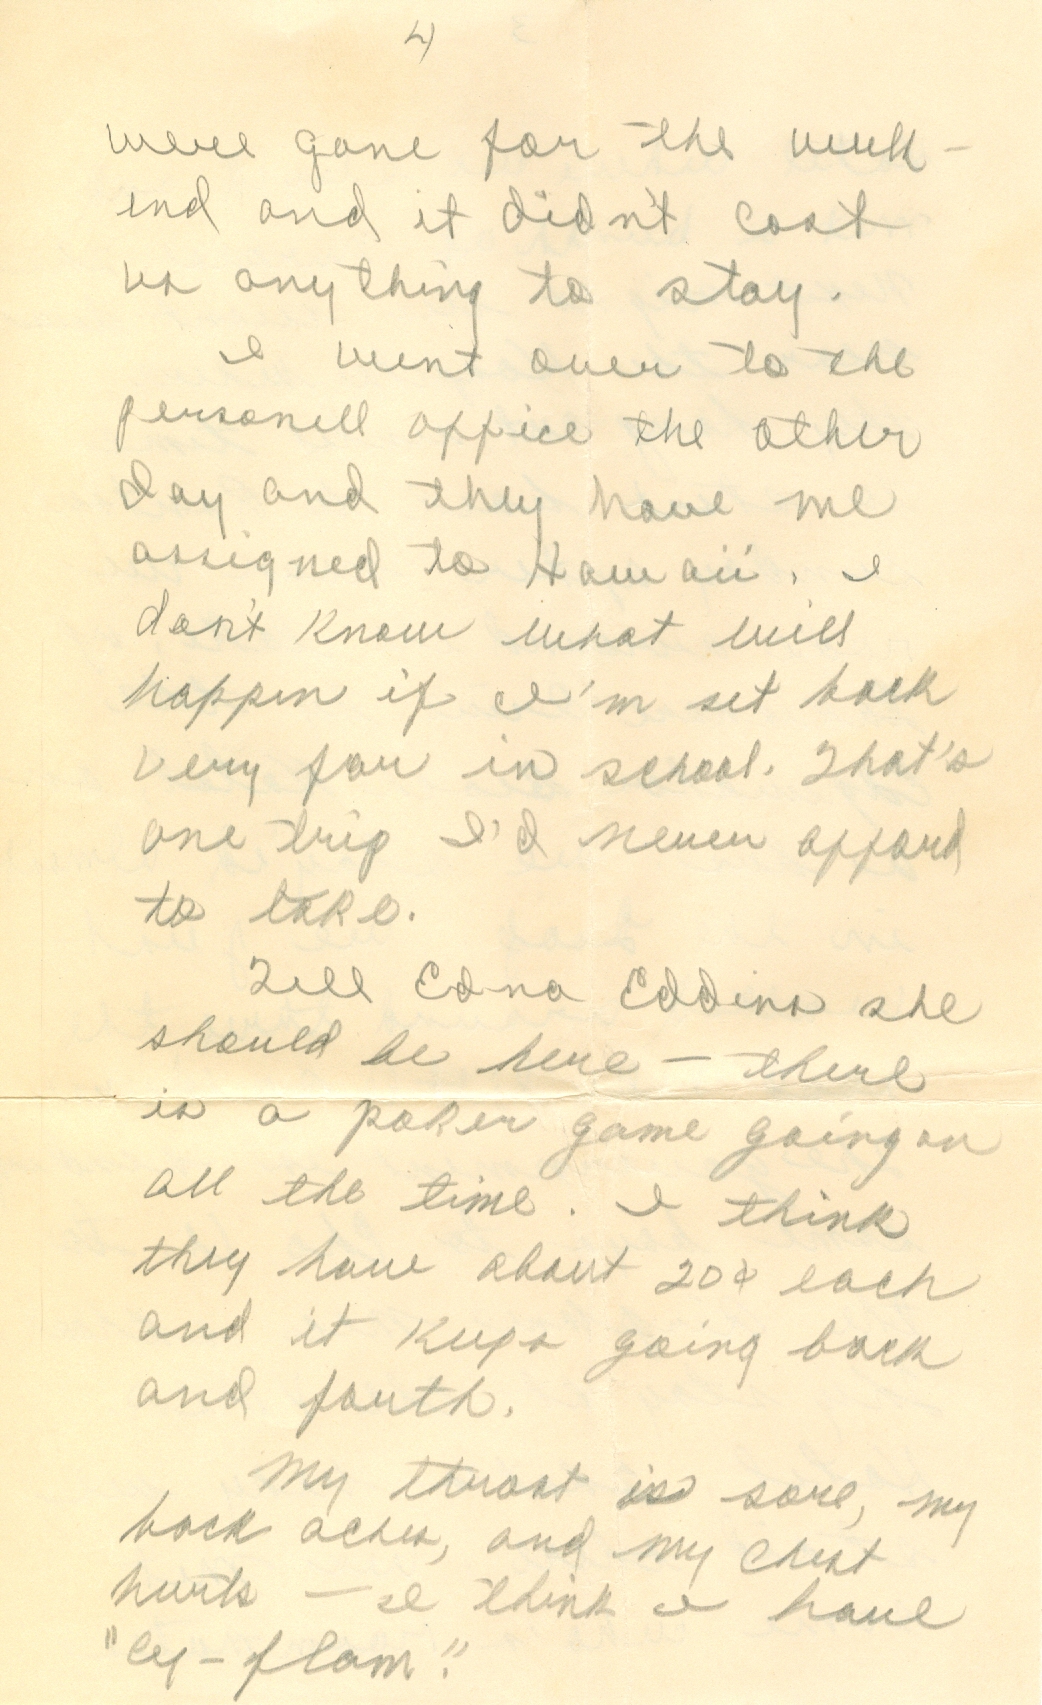 4
were gone for the week-
end and it didn't cost
us anything to stay.
I went over to the
personell office the other
day and they have me
assigned to Hawaii. I
don't know what will
happen if I'm set back
very far in school. That's
one trip I'd never afford
to take.
Tell Edna Eddins she
should be here — there
is a poker game going on
all the time. I think
they have about 20¢ each
and it keeps going back
and fourth.
My throat is sore, my
back aches, and my chest
hurts — I think I have
"cy-flam".